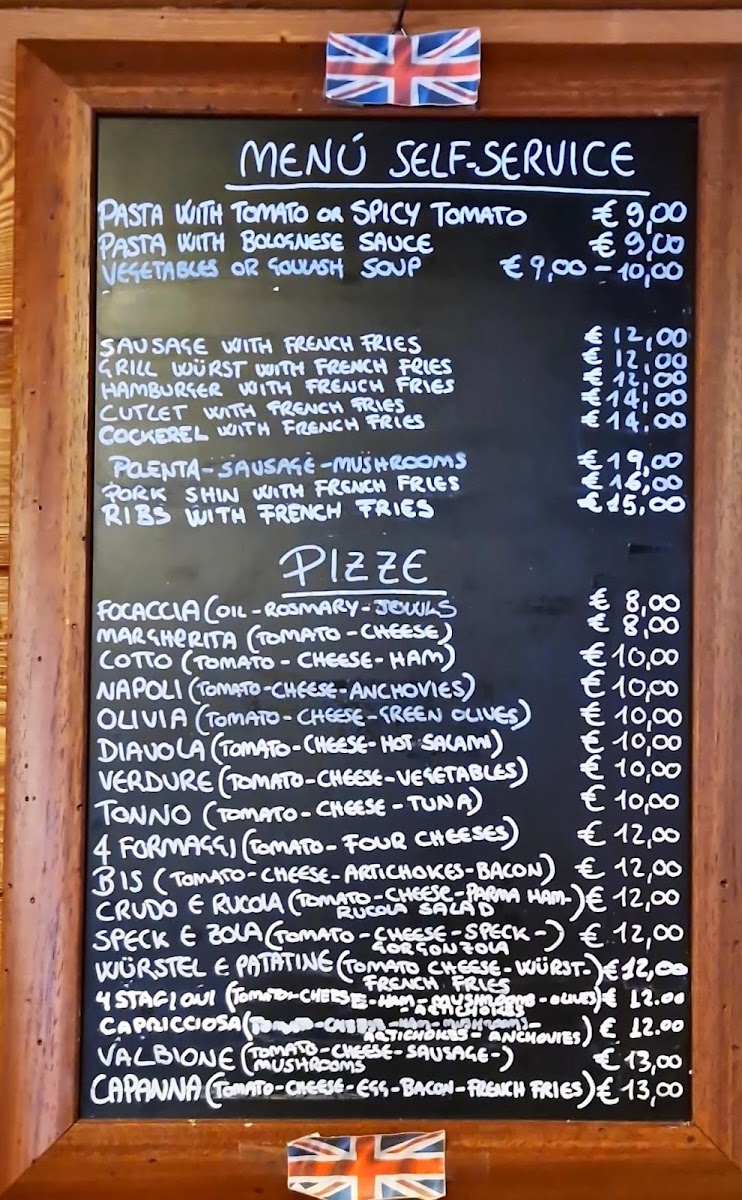 MENÚ SELF-SERVICE
PASTA WITH TOMATO OR SPICY TOMATO € 9,00
PASTA WITH BOLOGNESE SAUCE € 9,00
VEGETABLES OR GOULASH SOUP € 9,00 - 10,00
SAUSAGE WITH FRENCH FRIES € 12,00
GRILL WÜRST WITH FRENCH FRIES € 12,00
HAMBURGER WITH FRENCH FRIES € 12,00
CUTLET WITH FRENCH FRIES € 14,00
COCKEREL WITH FRENCH FRIES € 14,00
POLENTA-SAUSAGE-MUSHROOMS € 19,00
PORK SHIN WITH FRENCH FRIES € 16,00
RIBS WITH FRENCH FRIES € 15,00
PIZZE
FOCACCIA (OIL-ROSMARY- € 8,00
MARGHERITA (TOMATO-CHEESE) € 8,00
COTTO (TOMATO-CHEESE-HAM) € 10,00
NAPOLI (TOMATO-CHEESE-ANCHOVIES) € 10,00
OLIVIA (TOMATO-CHEESE-GREEN OLIVES) € 10,00
DIAVOLA (TOMATO-CHEESE-HOT SALAMI) € 10,00
VERDURE (TOMATO-CHEESE-VEGETABLES) € 10,00
TONNO (TOMATO-CHEESE-TUNA) € 10,00
4 FORMAGGI (TOMATO-FOUR CHEESES) € 12,00
BIS (TOMATO-CHEESE-ARTICHOKES-BACON) € 12,00
CRUDO E RUCOLA (TOMATO-CHEESE-PARMA HAM-) € 12,00
RUCOLA SALAD
SPECK E ZOLA (TOMATO-CHEESE-SPECK-) € 12,00
GORGONZOLA
WÜRSTEL E PATATINE (TOMATO CHEESE-WÜRST-) € 12,00
FRENCH FRIES
4 STAGIONI (TOMATO-CHEESE-HAM-MUSHROOMS-OLIVES) € 12.00
-ARTICHOKES
CAPRICCIOSA (TOMATO-CHEESE-HAM-MUSHROOMS- € 12.00
ARTICHOKES-ANCHOVIES)
VALBIONE (TOMATO-CHEESE-SAUSAGE-) € 13,00
MUSHROOMS
CAPANNA (TOMATO-CHEESE-EGG-BACON-FRENCH FRIES) € 13,00